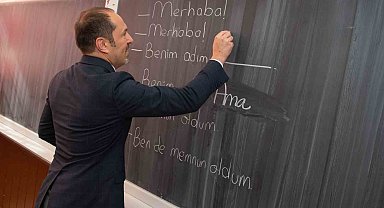 - Merhaba!
- Merhaba!
- Benim adım
- Benim Ama
oldum.
- Ben de memnun oldum.